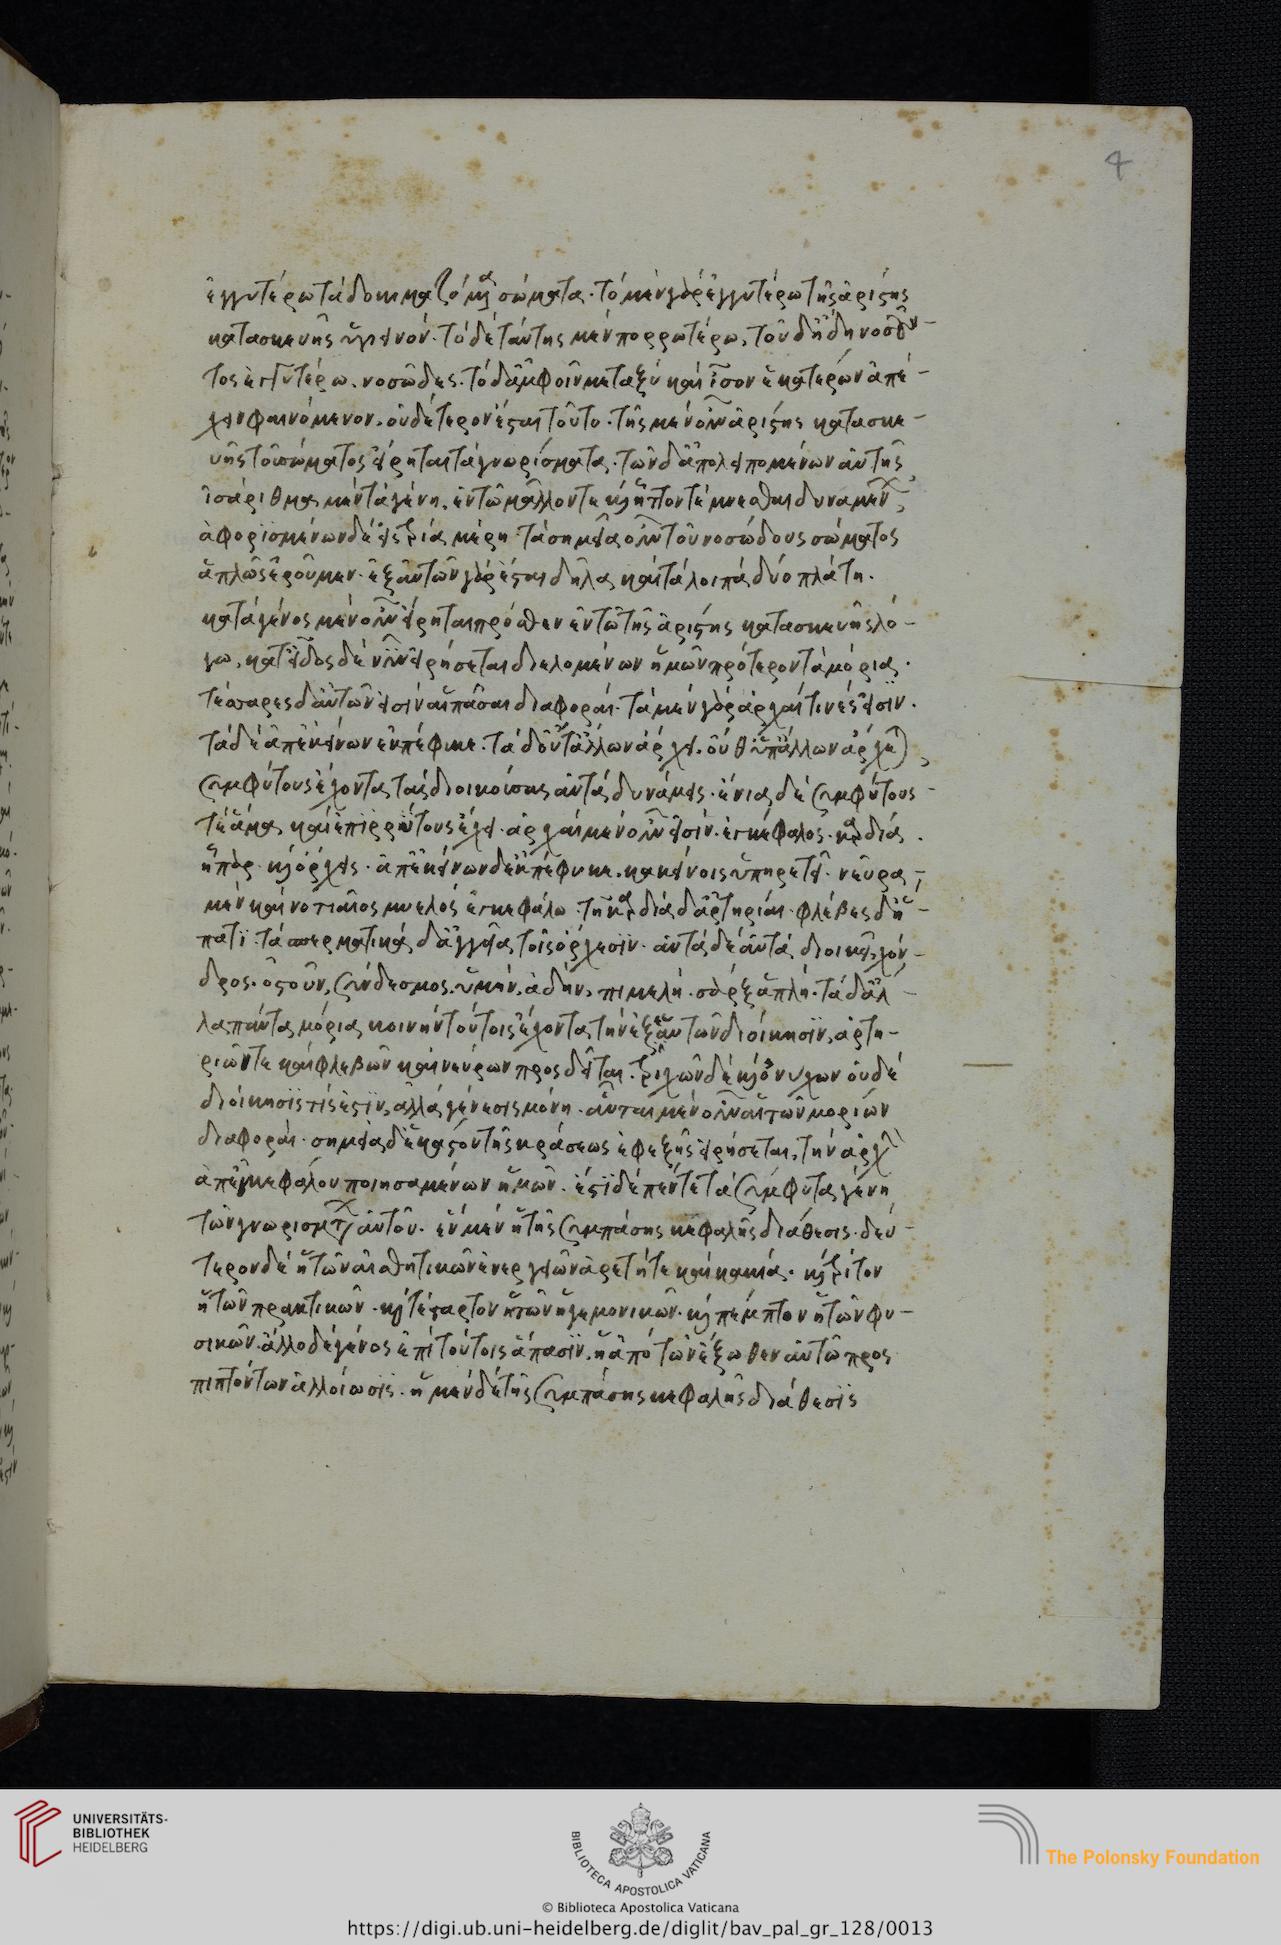 4
ἐγγυτέρω τὰ δοκιμαζόμενα σώματα. τὸ μὲν γὰρ ἐγγυτέρω τῆς ἀρίστης
κατασκευῆς ὑγιεινόν. τὸ δὲ ταύτης μὲν πορρωτέρω, τοῦ δ' ἤδη νοσοῦν-
τος ἐγγυτέρω, νοσῶδες. τὸ δ' ἀμφοῖν μεταξὺ καὶ ἴσον ἑκατέρων ἀπέ-
χειν φαινόμενον, οὐδέτερον ἔσται τοῦτο. τῆς μὲν οὖν ἀρίστης κατασκευ-
υῆς τοῦ σώματος εἴρηται τὰ γνωρίσματα. τῶν δ' ἀπολειπομένων αὐτῆς
ἰσάριθμα μὲν τὰ γένη, ἐν τῷ μᾶλλόν τε καὶ ἧττον τέμνεσθαι δυναμένων,
ἀφορισμένων δὲ εἰς τρία μέρη. τὰ σημεῖα οὖν τοῦ νοσώδους σώματος
ἁπλῶς ἐροῦμεν. ἐξ αὐτῶν γὰρ ἔσται δῆλα καὶ τὰ λοιπὰ δύο πλάτη.
κατὰ γένος μὲν οὖν εἴρηται πρόσθεν ἐν τῷ τῆς ἀρίστης κατασκευῆς λό-
γω, κατ' εἶδος δὲ νῦν εἰρήσεται διελομένων ἡμῶν πρότερον τὰ μόρια.
τέσσαρες δ' αὐτῶν εἰσίν αἱ πᾶσαι διαφοραί. τὰ μὲν γὰρ ἀρχαί τινές εἰσιν.
τὰ δὲ ἀπ' ἐκείνων ἐκπέφυκε. τὰ δ' οὔτ' ἄλλων ἄρχει. οὔθ' ὑπ' ἄλλων ἄρχεται,
συμφύτους ἔχοντα τὰς διοικούσας αὐτὰ δυνάμεις. ἔνια δὲ συμφύτους
τε ἅμα καὶ ἐπιρρύτους ἔχει. ἀρχαὶ μὲν οὖν εἰσίν. ἐγκέφαλος. καρδία.
ἧπαρ. καὶ ὄρχεις. ἀπ' ἐκείνων δ' ἐκπέφυκε. κακείνοις ὑπηρετεῖ. νεῦρα
μὲν καὶ νοτιαῖος μυελός ἐγκεφάλω. τῆ καρδία δ' ἀρτηρίαι. φλέβες δ' ἥ-
πατι. τὰ σπερματικὰ δ' ἀγγεῖα τοῖς ὄρχεσιν. αὐτὰ δὲ αὑτὰ διοικεῖ, χόν-
δρος. ὀστοῦν, σύνδεσμος. ὑμήν, ἀδήν, πιμελή. σὰρξ ἁπλῆ. τὰ δ' ἄλ-
λα πάντα μόρια κοινὴν τούτοις ἔχοντα τὴν ἐξ αὑτῶν διοίκησιν, ἀρτη-
ριῶν τε καὶ φλεβῶν καὶ νεύρων προσδεῖται. τριχῶν δὲ καὶ ὀνύχων οὐδὲ
διοίκησίς τίς ἐστιν, ἀλλὰ γένεσις μόνη. αὗται μὲν οὖν αἱ τῶν μορίων
διαφοραί. σημεῖα δ' ἑκάστου τῆς κράσεως ἐφεξῆς εἰρήσεται, τὴν ἀρχὴν
ἀπ' ἐγκεφάλου ποιησαμένων ἡμῶν. ἔστι δὲ πέντε τὰ σύμφυτα γένη
τῶν γνωρισμάτων αὐτοῦ. ἓν μὲν ἡ τῆς συμπάσης κεφαλῆς διάθεσις. δεύ-
τερον δὲ ἡ τῶν αἰσθητικῶν ἐνεργειῶν ἀρετή τε καὶ κακία. καὶ τρίτον
ἡ τῶν πρακτικῶν. καὶ τέταρτον ἡ τῶν ἡγεμονικῶν. καὶ πέμπτον ἡ τῶν φυ-
σικῶν. ἄλλο δὲ γένος ἐπὶ τούτοις ἅπασιν. ἡ ἀπὸ τῶν ἔξωθεν αὐτῶ προς
πιπτόντων ἀλλοίωσις. ἡ μὲν δὲ τῆς συμπάσης κεφαλῆς διάθεσις
UNIVERSITÄTS-
BIBLIOTHEK
HEIDELBERG
BIBLIOTECA APOSTOLICA VATICANA
The Polonsky Foundation
© Biblioteca Apostolica Vaticana
https://digi.ub.uni-heidelberg.de/diglit/bav_pal_gr_128/0013